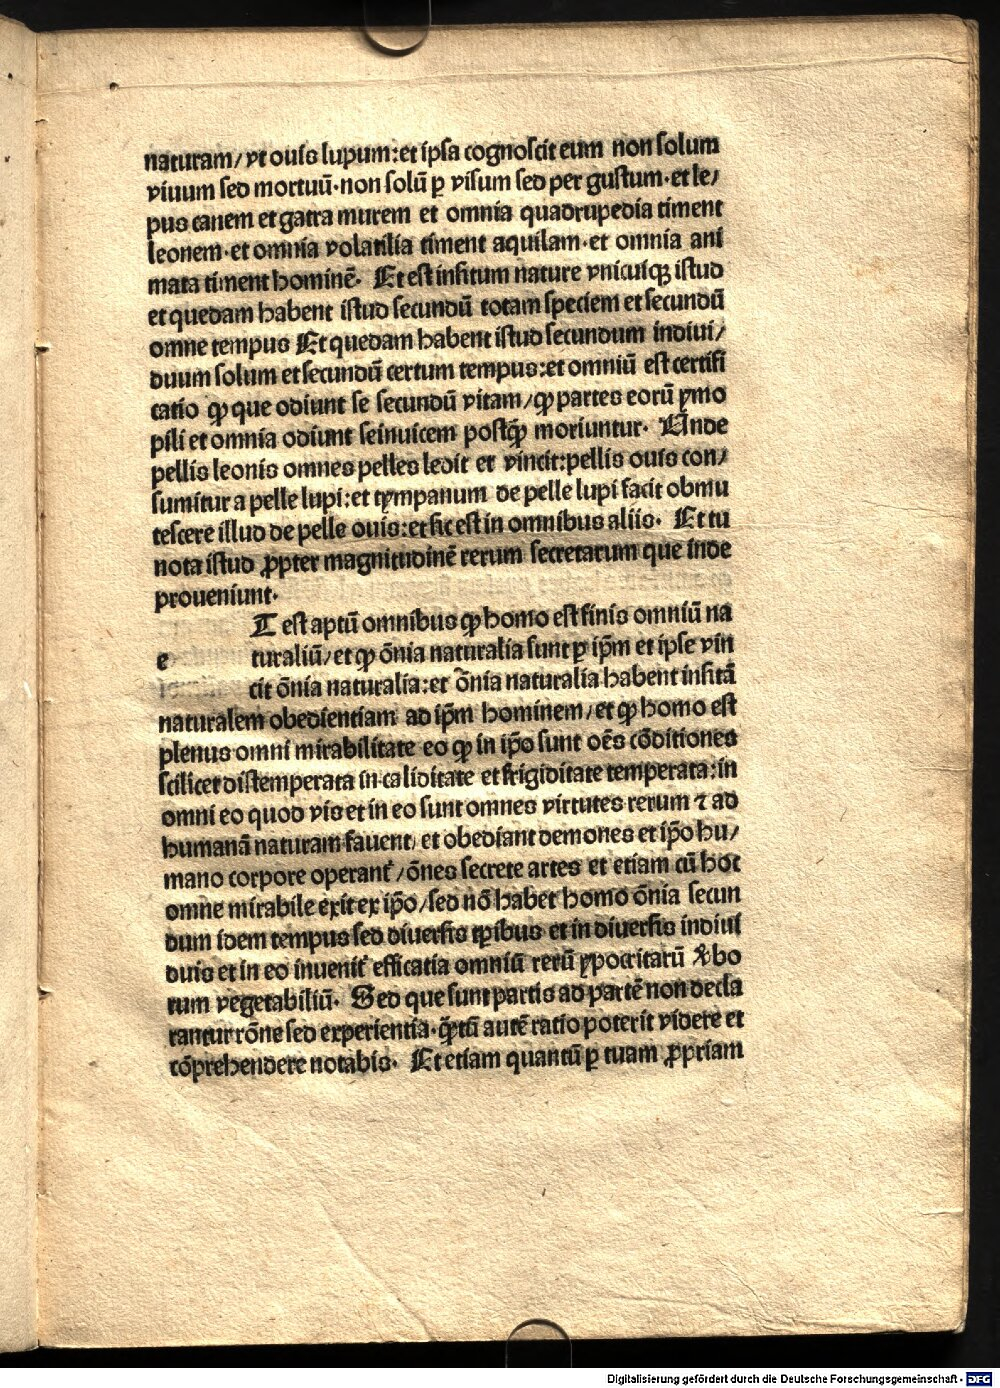 naturam/ vt ouis lupum: et ipsa cognoscit eum non solum
viuum sed mortuū· non solū ꝑ visum sed per gustum· et le/
pus canem et gatta murem et omnia quadrupedia timent
leonem· et omnia volatilia timent aquilam· et omnia ani
mata timent hominē· Et est insitum nature vnicuiqꝫ istud
et quedam habent istud secundū totam speciem et secundū
omne tempus Et quedam habent istud secundum indiui/
duum solum et secundū certum tempus: et omniū est certifi
catio ꝙ que odiunt se secundū vitam/ ꝙ partes eorū ymo
pili et omnia odiunt seinuicem postꝙ̄ moriuntur· Unde
pellis leonis omnes pelles ledit et vincit: pellis ouis con/
sumitur a pelle lupi: et tympanum de pelle lupi facit obmu
tescere illud de pelle ouis: et sic est in omnibus aliis· Et tu
nota istud ꝓpter magnitudinē rerum secretarum que inde
proueniunt·
e T est aptū omnibus ꝙ homo est finis omniū na
turaliū/ et ꝙ ōnia naturalia sunt ꝑ ip̄m et ipse vin
cit ōnia naturalia: et ōnia naturalia habent insitā
naturalem obedientiam ad ip̄m hominem/ et ꝙ homo est
plenus omni mirabilitate eo ꝙ in ip̄o sunt oēs cōditiones
scilicet distemperata in caliditate et frigiditate temperata: in
omni eo quod vis et in eo sunt omnes virtutes rerum ⁊ ad
humanā naturam fauent/ et obediant demones et ip̄o hu/
mano corpore operant᷑/ ōnes secrete artes et etiam cū hoc
omne mirabile exit ex ip̄o/ sed nō habet homo ōnia secun
dum idem tempus sed diuersis tꝑibus et in diuersis indiui
duis et in eo inuenit᷑ efficatia omniū rerū ypocritarū & bo
rum vegetabiliū· Sed que sunt partis ad partē non decla
rantur rōne sed experientia· ꝙ̄tū autē ratio poterit videre et
cōprehendere notabis· Et etiam quantū ꝑ tuam ꝓpriam
Digitalisierung gefördert durch die Deutsche Forschungsgemeinschaft - DFG